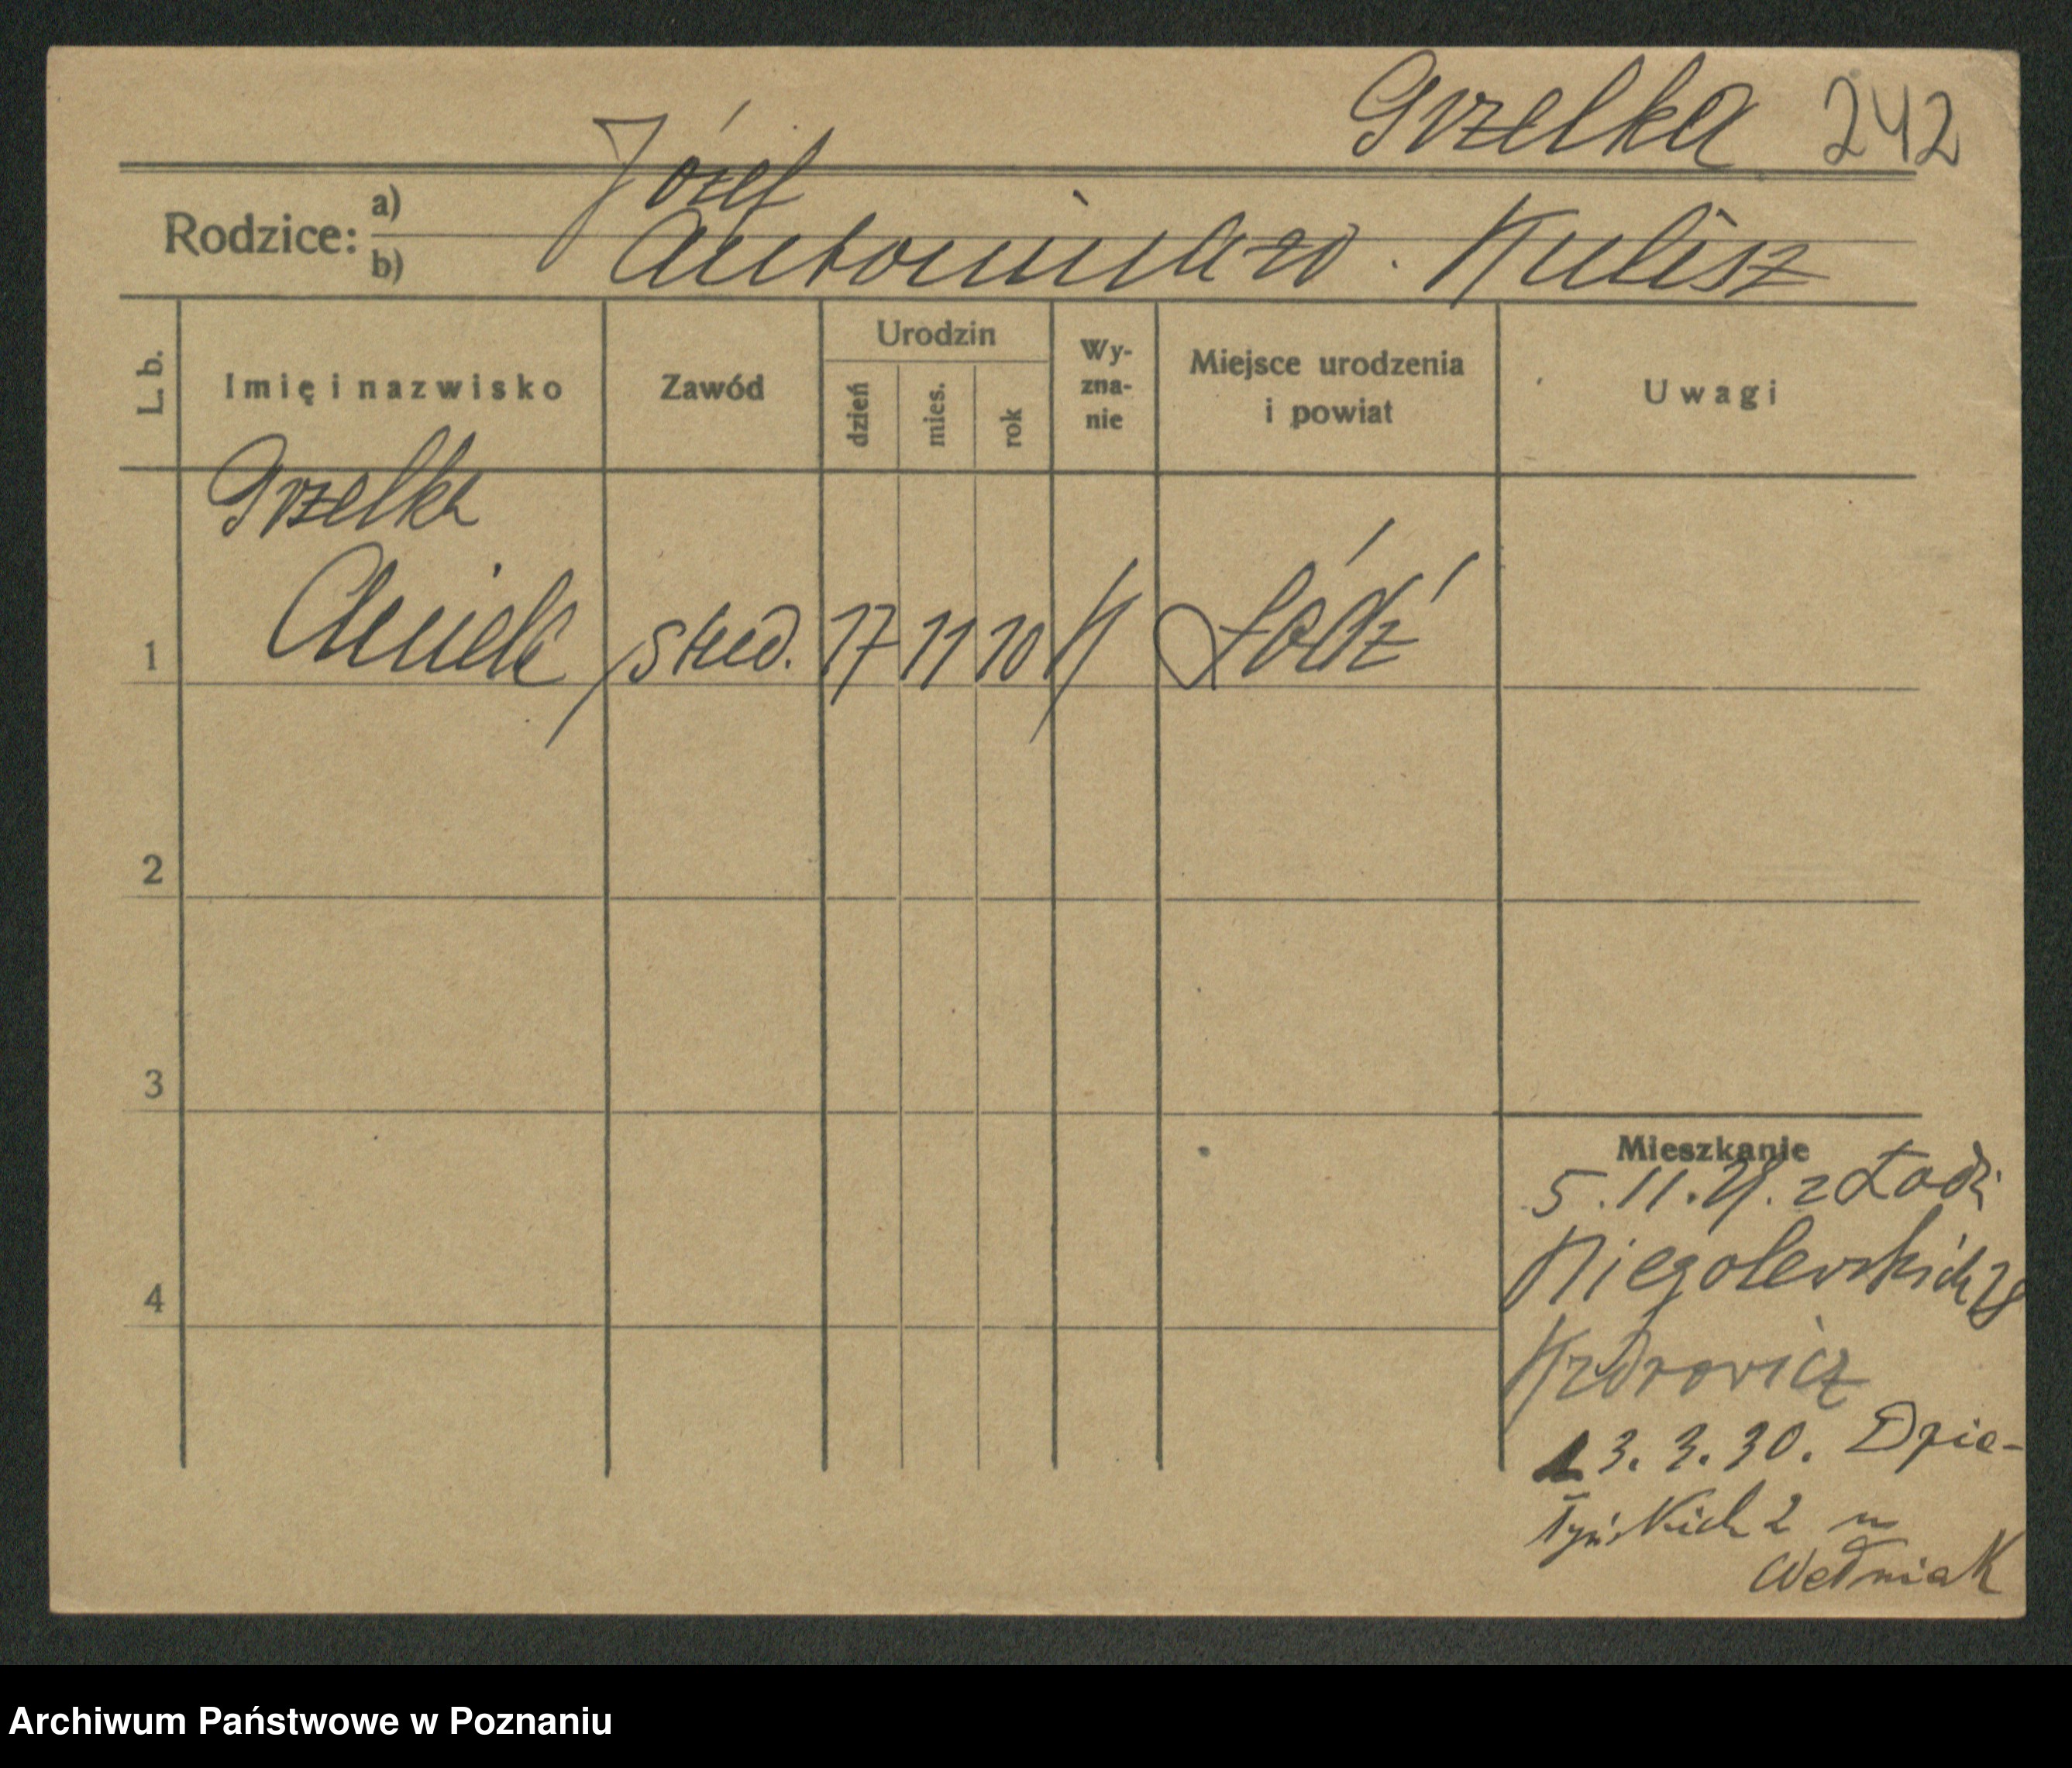 Grzelka 242
Rodzice: a) Józef
b) Antonina zd. Kulisz
L. b. Imię i nazwisko Zawód Urodzin dzień mies. rok Wyznanie Miejsce urodzenia i powiat Uwagi
Grzelka
1 Aniela stud. 17 11 10 K Łódź
2
3
Mieszkanie
5.11.29. z Łodzi
4 Niegolewskich 28
13.3.30. Dzia-
łyńskich 2 u
Wełniak
Archiwum Państwowe w Poznaniu